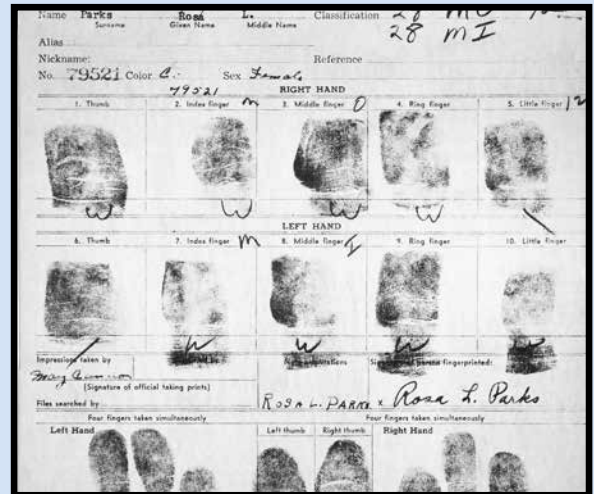 Name Parks Rosa L. Classification 28 m
Surname Given Name Middle Name 28 m I
Alias
Nickname: Reference
No. 79521 Color C. Sex Female
79521 RIGHT HAND
1. Thumb 2. Index finger m 3. Middle finger O 4. Ring finger 5. Little finger 12
W W W W \
LEFT HAND
6. Thumb 7. Index finger m 8. Middle finger I 9. Ring finger 10. Little finger
/ W W W W
Impressions taken by person fingerprinted:
(Signature of official taking prints)
Files searched by ROSA L. PARKS x Rosa L. Parks
Four fingers taken simultaneously Four fingers taken simultaneously
Left Hand Left thumb Right thumb Right Hand